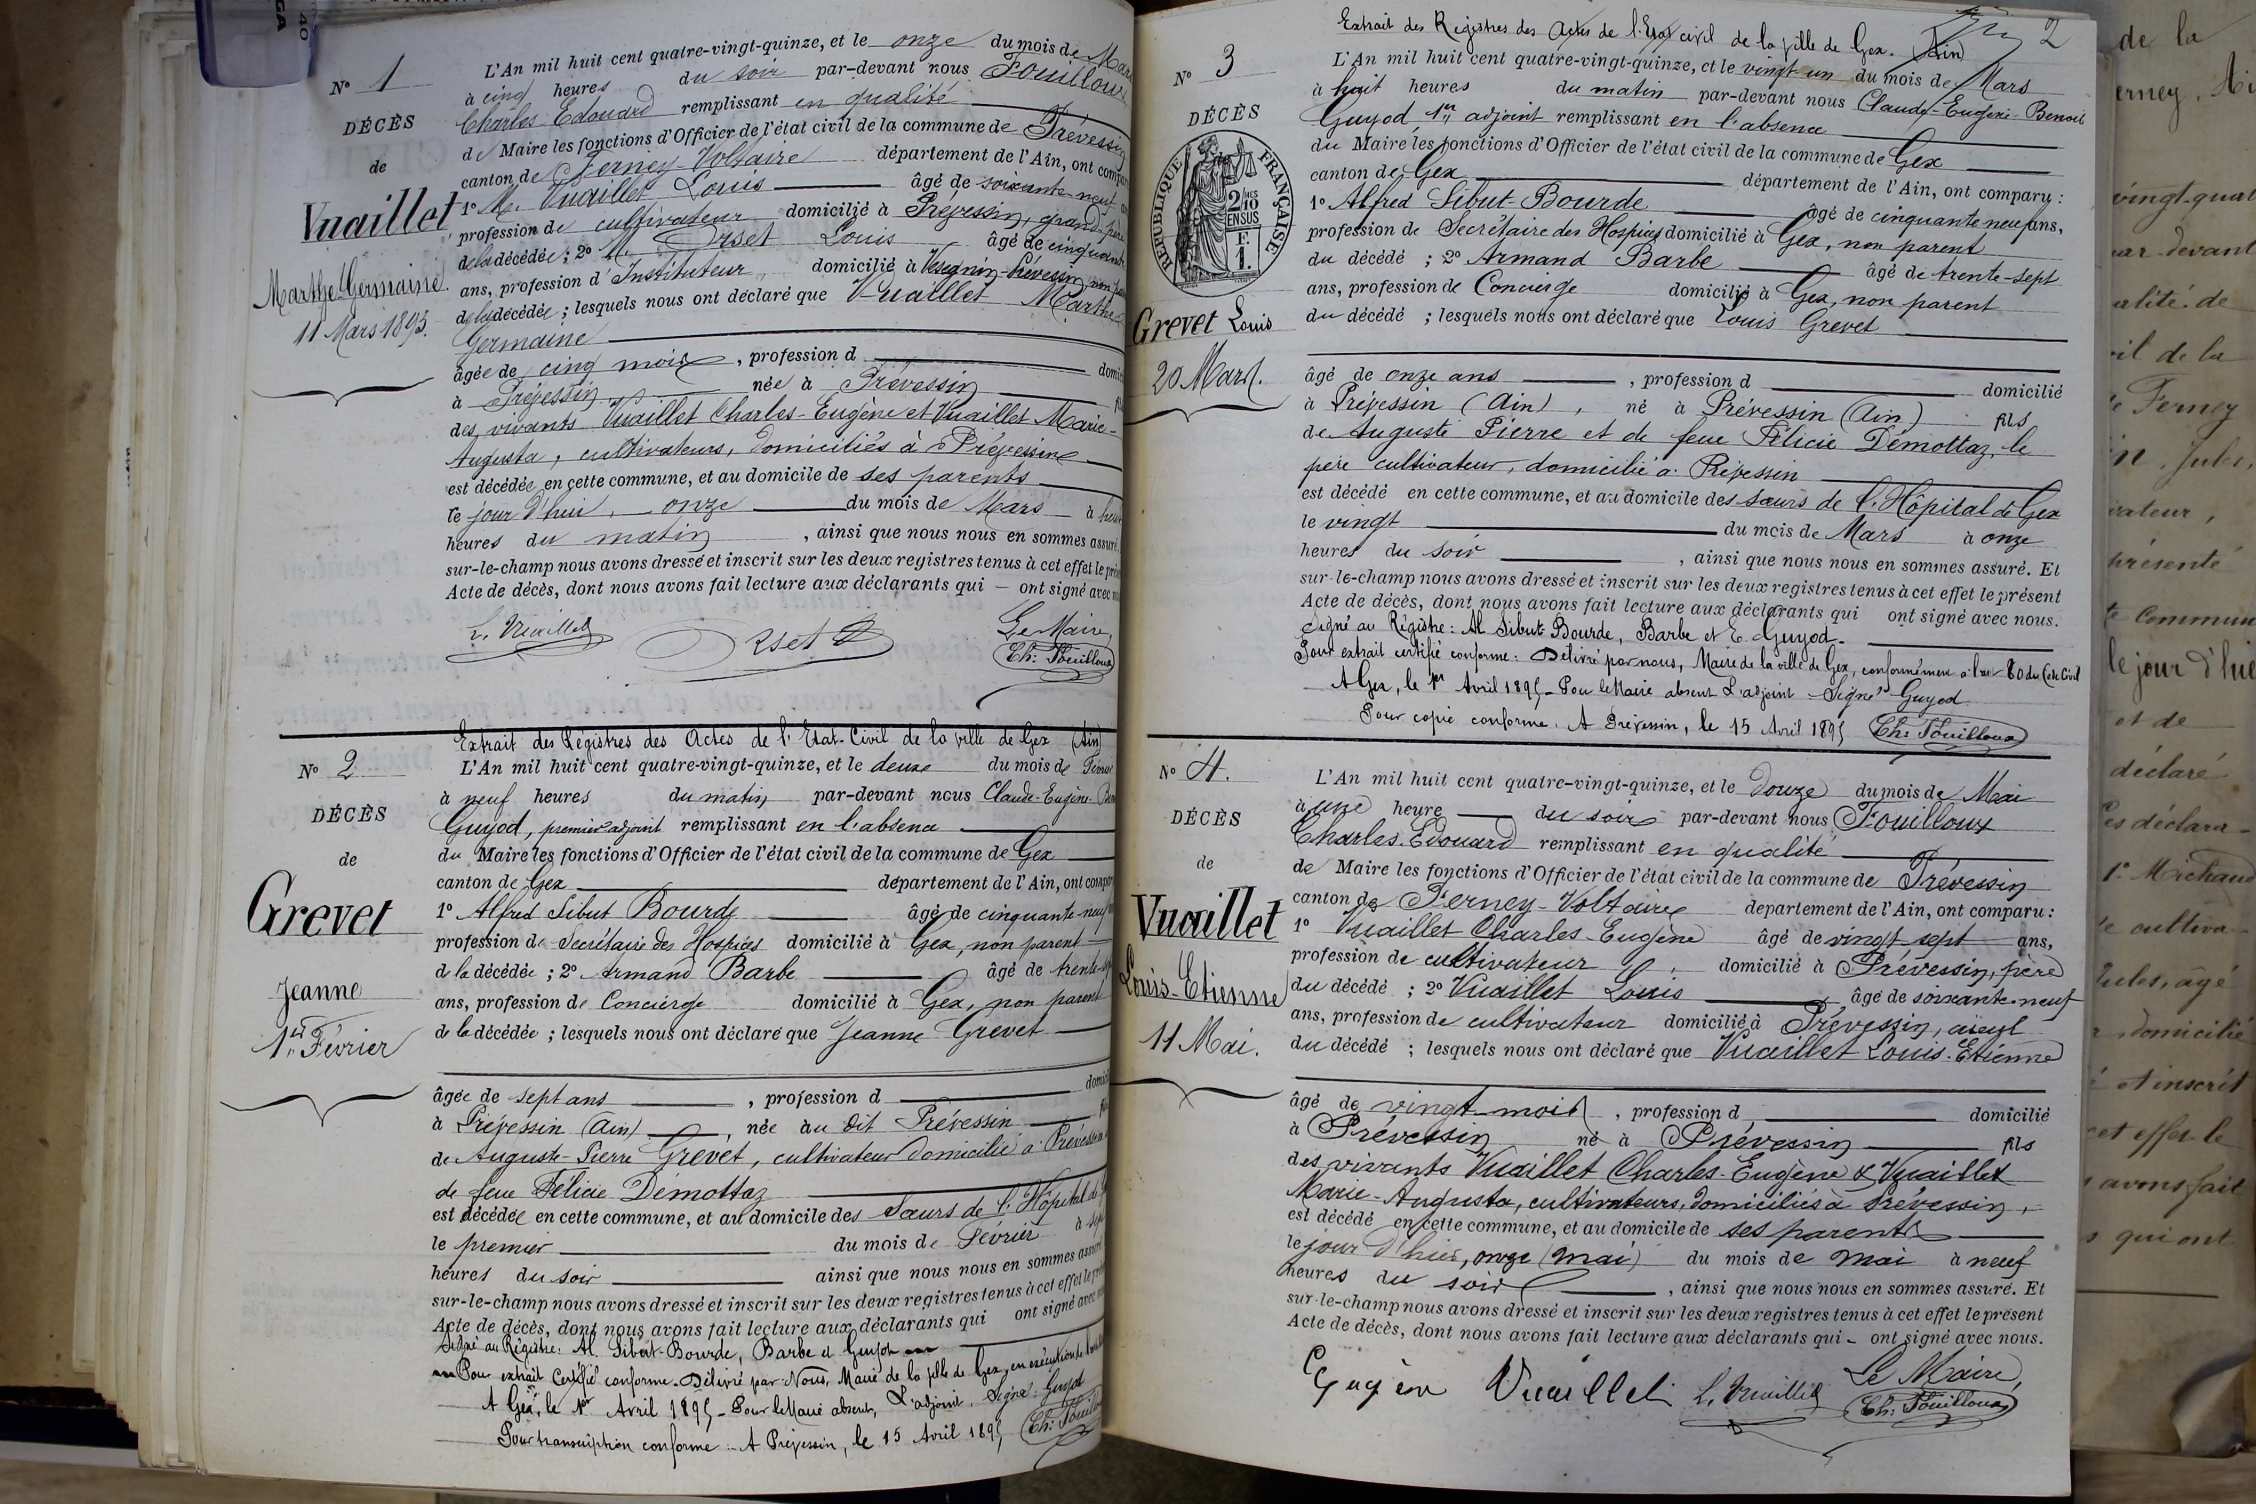 Nº 1
DÉCÈS
de
Vuaillet
Marthe Germaine
11 Mars 1895.
L'An mil huit cent quatre-vingt-quinze, et le onze du mois de Mars
à cinq heures du soir par-devant nous Fouilloux
Charles Edouard remplissant en qualité
de Maire les fonctions d'Officier de l'état civil de la commune de Prévessin
canton de Ferney Voltaire département de l'Ain, ont compar
1º M. Vuaillet Louis âgé de soixante-neuf
profession de cultivateur domicilié à Prévessin, grand-père
de la décédée ; 2º M. Orset Louis âgé de cinquante
ans, profession d'Instituteur, domicilié à Vesegnin-Prévessin, non
de la décédée ; lesquels nous ont déclaré que Vuaillet Marthe
Germaine
âgée de cinq mois, profession d domici
à Prévessin née à Prévessin
des vivants Vuaillet Charles-Eugène et Vuaillet Marie-
Augusta, cultivateurs, domiciliés à Prévessin
est décédée en cette commune, et au domicile de ses parents
le jour d'hui, onze du mois de Mars à
heures du matin, ainsi que nous nous en sommes assuré
sur-le-champ nous avons dressé et inscrit sur les deux registres tenus à cet effet le pré
Acte de décès, dont nous avons fait lecture aux déclarants qui — ont signé avec
L. Vuaillet Orset L Le Maire,
Ch: Fouilloux
Nº 2
DÉCÈS
de
Grevet
Jeanne
1er Février
Extrait des Régistres des Actes de l'Etat-Civil de la ville de Gex (Ain)
L'An mil huit cent quatre-vingt-quinze, et le deux du mois de Février
à neuf heures du matin par-devant nous Claude-Eugène-Ben
Guyod, premier adjoint remplissant en l'absence
du Maire les fonctions d'Officier de l'état civil de la commune de Gex
canton de Gex département de l'Ain, ont compar
1º Alfred Sibut Bourde âgé de cinquante-neuf
profession de Secrétaire des Hospices domicilié à Gex, non parent
de la décédée ; 2º Armand Barbe âgé de trente-sept
ans, profession de Concierge domicilié à Gex, non parent
de la décédée ; lesquels nous ont déclaré que Jeanne Grevet
âgée de sept ans, profession d domici
à Prévessin (Ain), née au dit Prévessin
de Auguste-Pierre Grevet, cultivateur domicilié à Prévessin
de feue Félicie Démottaz
est décédée en cette commune, et au domicile des Sœurs de l'Hôpital de
le premier du mois de Février à sept
heures du soir ainsi que nous nous en sommes assuré
sur-le-champ nous avons dressé et inscrit sur les deux registres tenus à cet effet le
Acte de décès, dont nous avons fait lecture aux déclarants qui ont signé avec
Signé au Régistre: Al. Sibut-Bourde, Barbe et Guyod
Pour extrait Certifié conforme. Délivré par Nous, Maire de la ville de Gex, en exécution de
A Gex, le 1er Avril 1895 - Pour le Maire absent, L'adjoint, Signé: Guyod
Pour transcription conforme. A Prévessin, le 15 Avril 1895 Ch: Fouilloux
2
Nº 3
DÉCÈS
RÉPUBLIQUE FRANÇAISE
2/10 EN SUS
F. 1.
Grevet Louis
20 Mars.
Extrait des Registres des Actes de l'Etat civil de la ville de Gex. (Ain)
L'An mil huit cent quatre-vingt-quinze, et le vingt-un du mois de Mars
à huit heures du matin par-devant nous Claude-Eugène-Benoit
Guyod 1er adjoint remplissant en l'absence
du Maire les fonctions d'Officier de l'état civil de la commune de Gex
canton de Gex département de l'Ain, ont comparu :
1º Alfred Sibut-Bourde âgé de cinquante neuf ans,
profession de Secrétaire des Hospices domicilié à Gex, non parent
du décédé ; 2º Armand Barbe âgé de trente-sept
ans, profession de Concierge domicilié à Gex, non parent
du décédé ; lesquels nous ont déclaré que Louis Grevet
âgé de onze ans, profession d domicilié
à Prévessin (Ain), né à Prévessin (Ain) fils
de Auguste Pierre et de feue Félicie Démottaz, le
père cultivateur, domicilié à Prévessin
est décédé en cette commune, et au domicile des sœurs de l'Hôpital de Gex
le vingt du mois de Mars à onze
heures du soir, ainsi que nous nous en sommes assuré. Et
sur-le-champ nous avons dressé et inscrit sur les deux registres tenus à cet effet le présent
Acte de décès, dont nous avons fait lecture aux déclarants qui ont signé avec nous.
Signé au Régistre: Al Sibut-Bourde, Barbe et E. Guyod.
Pour extrait certifié conforme: Délivré par nous, Maire de la ville de Gex, conformément à l'art 80 du Code Civil
A Gex, le 1er Avril 1895 - Pour le Maire absent L'adjoint Signé Guyod
Pour copie conforme. A Prévessin, le 15 Avril 1895 Ch: Fouilloux
Nº 4.
DÉCÈS
de
Vuaillet
Louis-Etienne
11 Mai.
L'An mil huit cent quatre-vingt-quinze, et le douze du mois de Mai
à une heure du soir par-devant nous Fouilloux
Charles-Edouard remplissant en qualité
de Maire les fonctions d'Officier de l'état civil de la commune de Prévessin
canton de Ferney-Voltaire département de l'Ain, ont comparu :
1º Vuaillet Charles-Eugène âgé de vingt sept ans,
profession de cultivateur domicilié à Prévessin, père
du décédé ; 2º Vuaillet Louis âgé de soixante-neuf
ans, profession de cultivateur domicilié à Prévessin, aïeul
du décédé ; lesquels nous ont déclaré que Vuaillet Louis-Etienne
âgé de vingt mois, profession d domicilié
à Prévessin né à Prévessin fils
des vivants Vuaillet Charles-Eugène & Vuaillet
Marie-Augusta, cultivateurs, domiciliés à Prévessin,
est décédé en cette commune, et au domicile de ses parents
le jour d'hier, onze (mai) du mois de mai à neuf
heures du soir, ainsi que nous nous en sommes assuré. Et
sur-le-champ nous avons dressé et inscrit sur les deux registres tenus à cet effet le présent
Acte de décès, dont nous avons fait lecture aux déclarants qui - ont signé avec nous.
Eugène Vuaillet L. Vuaillet Le Maire,
Ch: Fouilloux
de la
erney,
vingt-quat
par-devant
alité de
il de la
Ferney
Jules,
vateur,
présenté
commun
le jour d'hie
et de
déclaré
déclara-
1º Michaud
cultiva-
Jules, agé
domicilié
et inscrit
cet effet le
avons fait
qui ont